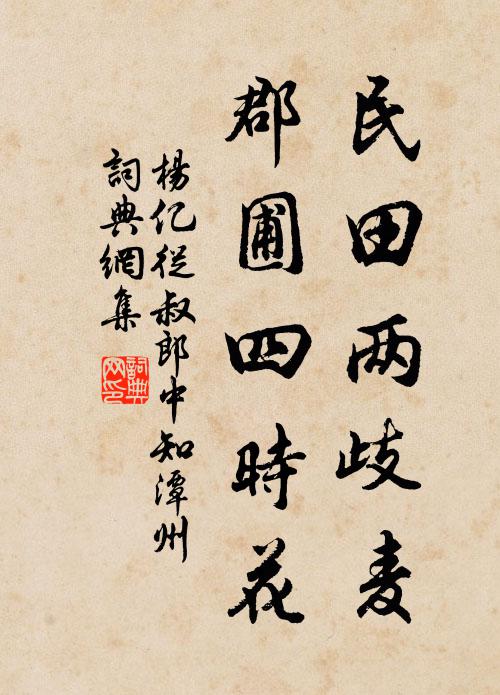 民田两歧麦
郡圃四時花
楊亿從叔郎中知潭州
詞典網集
詞典
网印